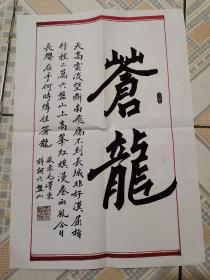 蒼龍
天高雲淡望斷南飛雁不到長城非好漢屈指
行程二萬六盤山上高峰紅旗漫卷西風今日
長纓在手何時縛住蒼龍
敬录毛澤東
詩詞六盤山